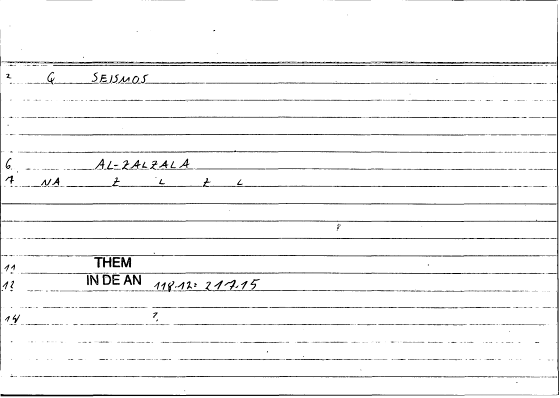 2 G SEISMOS
6 AL-ZALZALA
7 NA Z L Z L
11 THEM
12 IN DE AN 118.12: 217.15
14 ?